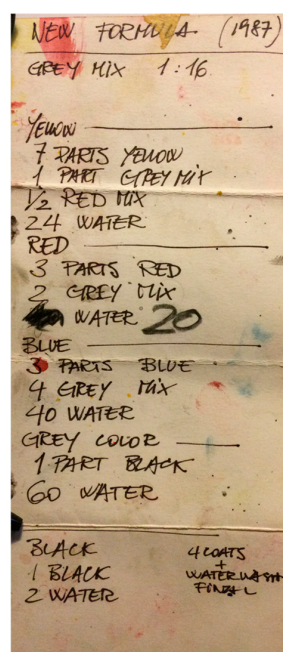 NEW FORMULA (1987)
GREY MIX 1:16
YELLOW
7 PARTS YELLOW
1 PART GREY MIX
1/2 RED MIX
24 WATER
RED
3 PARTS RED
2 GREY MIX
WATER 20
BLUE
3 PARTS BLUE
4 GREY MIX
40 WATER
GREY COLOR
1 PART BLACK
60 WATER
BLACK 4 COATS
+
1 BLACK WATER WASH
2 WATER FINAL